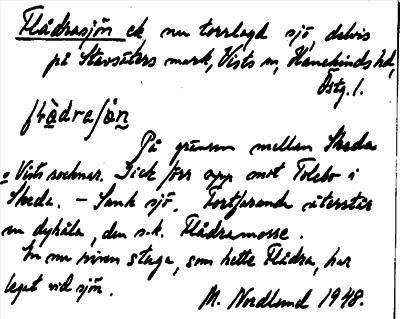 Flådrasjön ek, nu torrlagd sjö, delvis
på Stavsäters mark, Vists sn, Hanekinds hd,
Östg. l.
flådrasjön
På gränsen mellan Skeda
o Vists socknar. Gick förr upp mot Tolebo i
Skeda. – Sank sjö. Fortfarande återstår
en dyhåla, den s.k. Flådramosse.
En nu riven stuga, som hette Flådra, har
legat vid sjön.
M. Nordlund 1948.